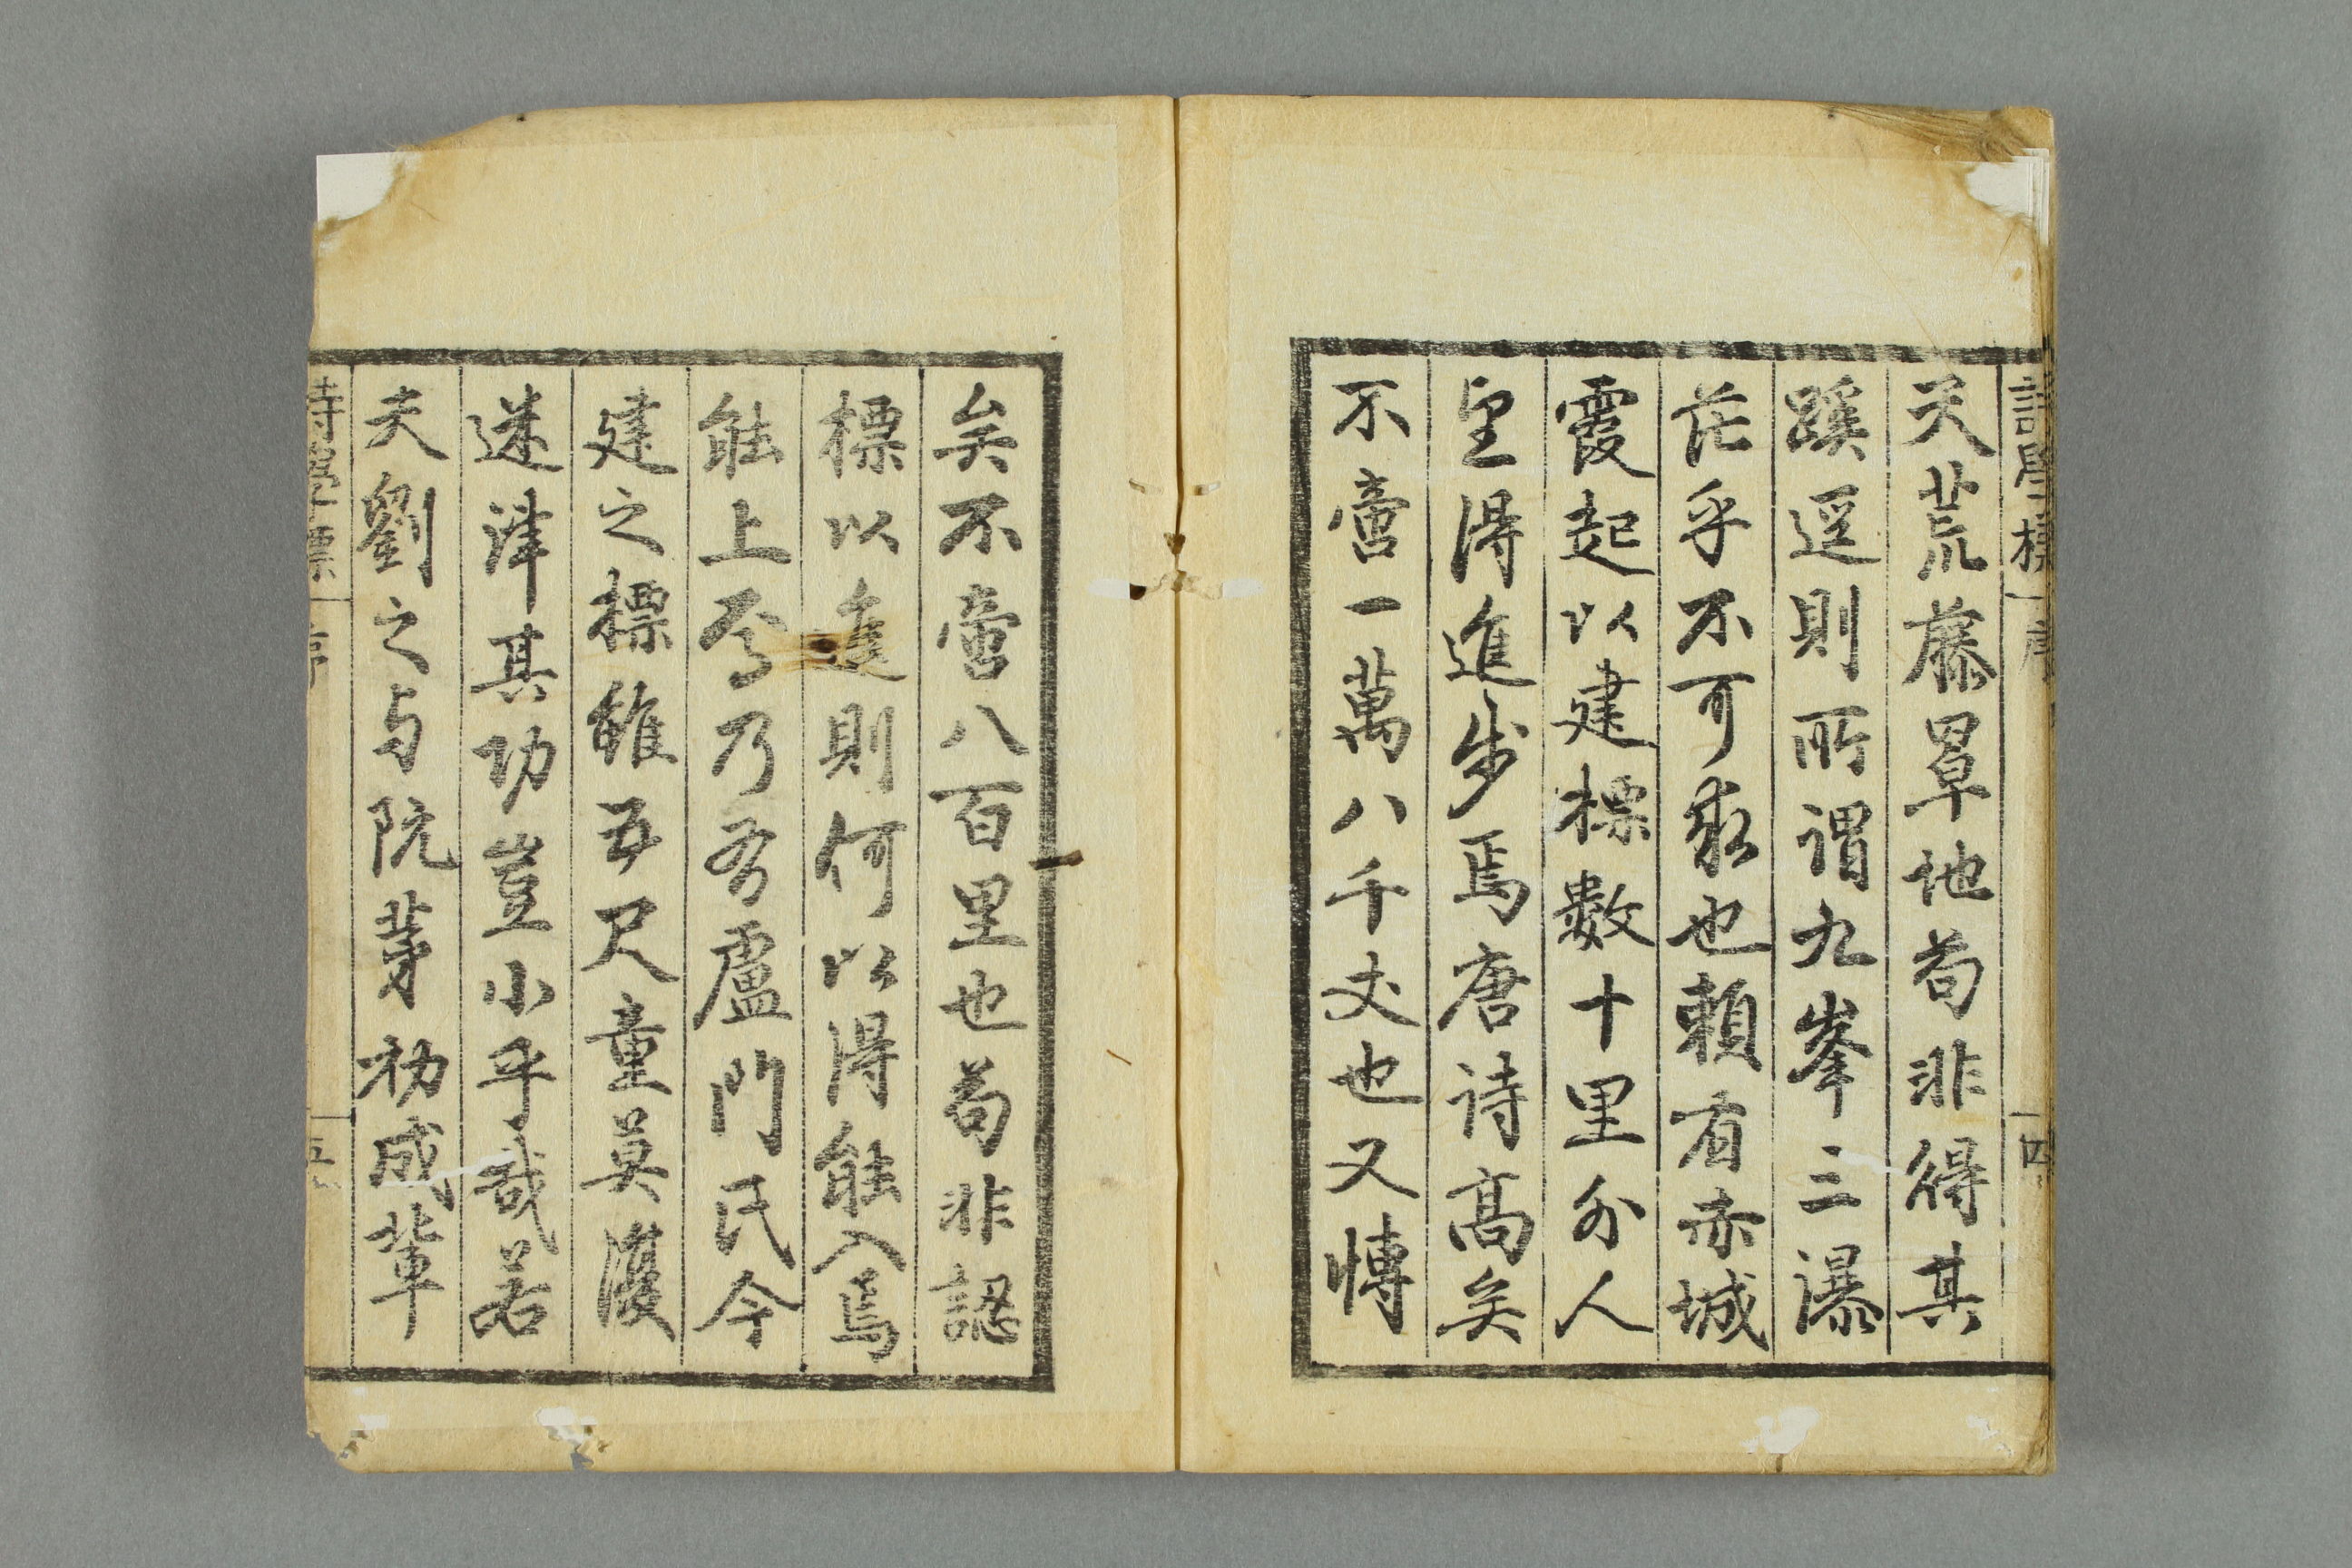 天荒藤罩地苟非得其
蹊逕則所謂九峯三瀑
茫乎不可親也頼有赤城
霞起以建標數十里外人
望得進步焉唐诗髙矣
不啻一萬八千丈也又慱
矣不啻八百里也苟非認
標以進則何以得能入焉
能上焉乃吾盧門氏今
建之標雖五尺童莫復
迷津其功豈小乎哉若
夫劉之与阮茅初成輩
四
五